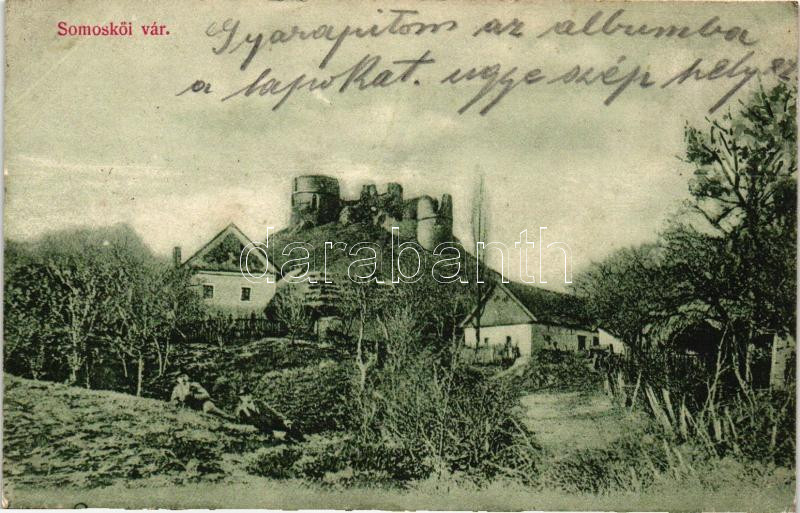 Somoskői vár.
Gyarapitom az albumba
a lapokat. ugye szép hely ez
darabanth